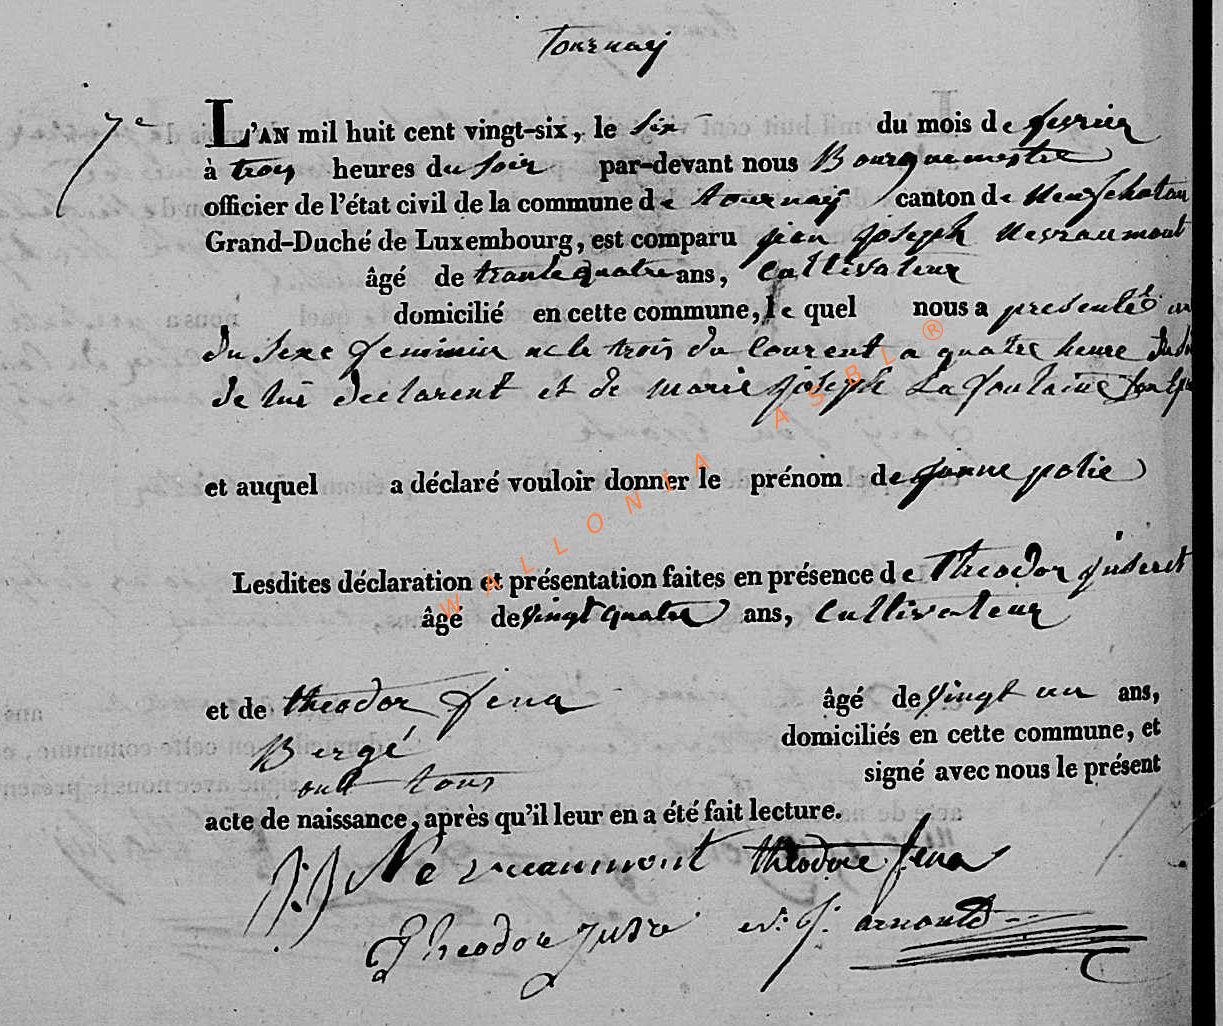 Tournay
7e L'AN mil huit cent vingt-six, le six du mois de fevrier
à trois heures du soir par-devant nous Bourguemestre
officier de l'état civil de la commune de tournay canton de Neufchatau
Grand-Duché de Luxembourg, est comparu jean joseph Nevraumont
âgé de trante quatre ans, Cultivateur
domicilié en cette commune, le quel nous a presentée un
du sexe feminin née le trois du Courent a quatre heure du
de lui declarent et de marie joseph La fontaine
et auquel a déclaré vouloir donner le prénom de janne polie
Lesdites déclaration et présentation faites en présence de Theodor juseret
âgé de vingt quatre ans, Cultivateur
et de theodor fena âgé de vingt un ans,
Bergé domiciliés en cette commune, et
ont tous signé avec nous le présent
acte de naissance, après qu'il leur en a été fait lecture.
J: J Nevraumont theodore fena
Theodore N: J: arnould
WALLONIA ASBL ®